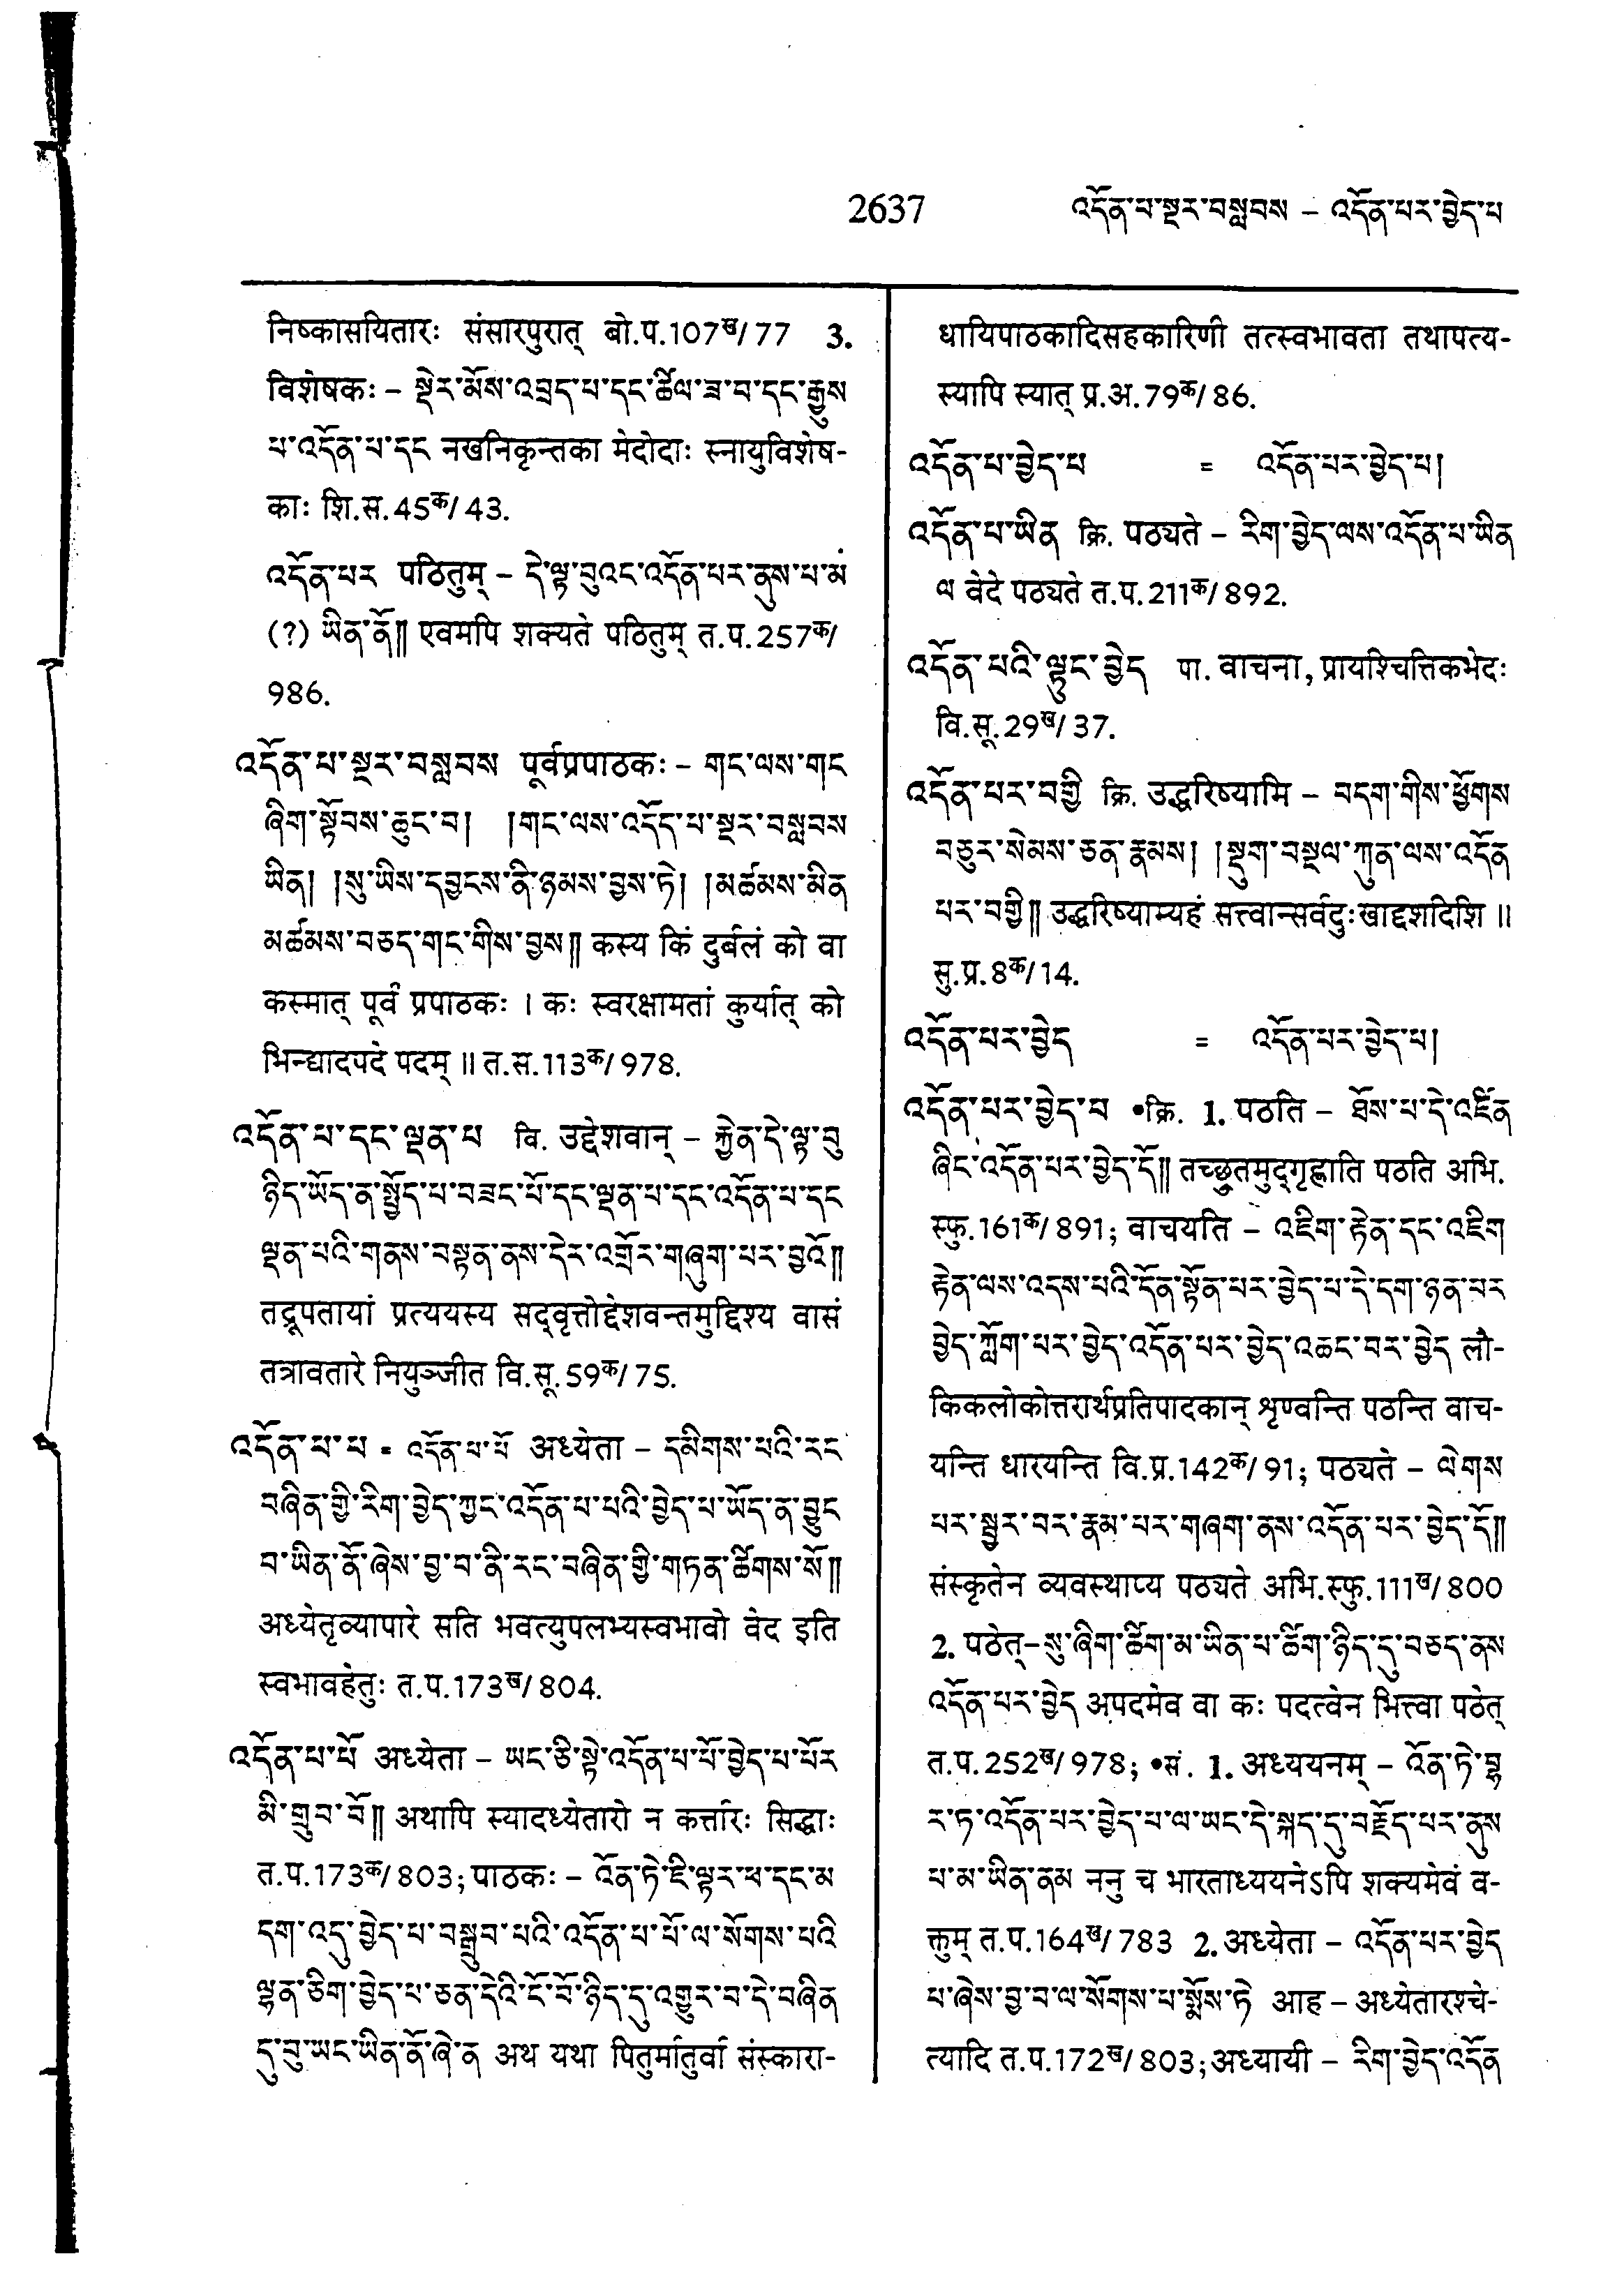 2637
འདོན་པ་སྔར་བསླབས – འདོན་པར་བྱེད་པ
निष्कासयितारः संसारपुरात् बो.प.107ख/77 3.
विशेषकः – སྡེར་མོས་འབྲད་པ་དང་ཚིལ་ཟ་བ་དང་རྒྱུས
པ་འདོན་པ་དང नखनिकृन्तका मेदोदाः स्नायुविशेष-
काः शि.स.45क/43.
འདོན་པར पठितुम् – དེ་ལྟ་བུའང་འདོན་པར་ནུས་པ་མ
(?) ཡིན་ནོ༎ एवमपि शक्यते पठितुम् त.प.257क/
986.
འདོན་པ་སྔར་བསླབས पूर्वप्रपाठकः – གང་ལས་གང
ཞིག་སྟོབས་ཆུང་བ། །གང་ལས་འདོད་པ་སྔར་བསླབས
ཡིན། །སུ་ཡིས་དབྱངས་ནི་ཉམས་བྱས་ཏེ། །མཚམས་མིན
མཚམས་བཅད་གང་གིས་བྱས༎ कस्य किं दुर्बलं को वा
कस्मात् पूर्वं प्रपाठकः । कः स्वरक्षामतां कुर्यात् को
भिन्द्यादपदे पदम् ॥ त.स.113क/978.
འདོན་པ་དང་ལྡན་པ वि. उद्देशवान् – རྐྱེན་དེ་ལྟ་བུ
ཉིད་ཡོད་ན་སྤྱོད་པ་བཟང་པོ་དང་ལྡན་པ་དང་འདོན་པ་དང
ལྡན་པའི་གནས་བསྟན་ནས་དེར་འགྲོར་གཞུག་པར་བྱའོ༎
तद्रूपतायां प्रत्ययस्य सद्वृत्तोद्देशवन्तमुद्दिश्य वासं
तत्रावतारे नियुञ्जीत वि.सू.59क/75.
འདོན་པ་པ = འདོན་པ་པོ अध्येता – དམིགས་པའི་རང
བཞིན་གྱི་རིག་བྱེད་ཀྱང་འདོན་པ་པའི་བྱེད་པ་ཡོད་ན་བྱུང
བ་ཡིན་ནོ་ཞེས་བྱ་བ་ནི་རང་བཞིན་གྱི་གཏན་ཚིགས་སོ༎
अध्येतृव्यापारे सति भवत्युपलभ्यस्वभावो वेद इति
स्वभावहेतुः त.प.173ख/804.
འདོན་པ་པོ अध्येता – ཡང་ཅི་སྟེ་འདོན་པ་པོ་བྱེད་པ་པོར
མི་གྲུབ་བོ༎ अथापि स्यादध्येतारो न कर्त्तारः सिद्धाः
त.प.173क/803; पाठकः – འོན་ཏེ་ཇི་ལྟར་ཕ་དང་མ
དག་འདུ་བྱེད་པ་བསྒྲུབ་པའི་འདོན་པ་པོ་ལ་སོགས་པའི
ལྷན་ཅིག་བྱེད་པ་ཅན་དེའི་ངོ་བོ་ཉིད་དུ་འགྱུར་བ་དེ་བཞིན
དུ་བུ་ཡང་ཡིན་ནོ་ཞེ་ན अथ यथा पितुर्मातुर्वा संस्कारा-
धायिपाठकादिसहकारिणी तत्स्वभावता तथापत्य-
स्यापि स्यात् प्र.अ.79क/86.
འདོན་པ་བྱེད་པ = འདོན་པར་བྱེད་པ།
འདོན་པ་ཡིན क्रि. पठ्यते – རིག་བྱེད་ལས་འདོན་པ་ཡིན
ལ वेदे पठ्यते त.प.211क/892.
འདོན་པའི་ལྟུང་བྱེད पा. वाचना, प्रायश्चित्तिकभेदः
वि.सू.29ख/37.
འདོན་པར་བགྱི क्रि. उद्धरिष्यामि – བདག་གིས་ཕྱོགས
བཅུར་སེམས་ཅན་རྣམས། །སྡུག་བསྔལ་ཀུན་ལས་འདོན
པར་བགྱི༎ उद्धरिष्याम्यहं सत्त्वान्सर्वदुःखाद्दशदिशि ॥
सु.प्र.8क/14.
འདོན་པར་བྱེད = འདོན་པར་བྱེད་པ།
འདོན་པར་བྱེད་པ •क्रि. 1. पठति – ཐོས་པ་དེ་འཛིན
ཞིང་འདོན་པར་བྱེད་དོ༎ तच्छ्रुतमुद्गृह्णाति पठति अभि.
स्फु.161क/891; वाचयति – འཇིག་རྟེན་དང་འཇིག
རྟེན་ལས་འདས་པའི་དོན་སྟོན་པར་བྱེད་པ་དེ་དག་ཉན་པར
བྱེད་ཀློག་པར་བྱེད་འདོན་པར་བྱེད་འཆང་བར་བྱེད लौ-
किकलोकोत्तरार्थप्रतिपादकान् शृण्वन्ति पठन्ति वाच-
यन्ति धारयन्ति वि.प्र.142क/91; पठ्यते – ལེགས
པར་སྦྱར་བར་རྣམ་པར་གཞག་ནས་འདོན་པར་བྱེད་དོ༎
संस्कृतेन व्यवस्थाप्य पठ्यते अभि.स्फु.111ख/800
2. पठेत् – སུ་ཞིག་ཚིག་མ་ཡིན་པ་ཚིག་ཉིད་དུ་བཅད་ནས
འདོན་པར་བྱེད अपदमेव वा कः पदत्वेन भित्त्वा पठेत्
त.प.252ख/978; •सं. 1. अध्ययनम् – འོན་ཏེ་བྷ
ར་ཏ་འདོན་པར་བྱེད་པ་ལ་ཡང་དེ་སྐད་དུ་བརྗོད་པར་ནུས
པ་མ་ཡིན་ནམ ननु च भारताध्ययनेऽपि शक्यमेवं व-
क्तुम् त.प.164ख/783 2. अध्येता – འདོན་པར་བྱེད
པ་ཞེས་བྱ་བ་ལ་སོགས་པ་སྨོས་ཏེ आह – अध्येतारश्चे-
त्यादि त.प.172ख/803; अध्यायी – རིག་བྱེད་འདོན